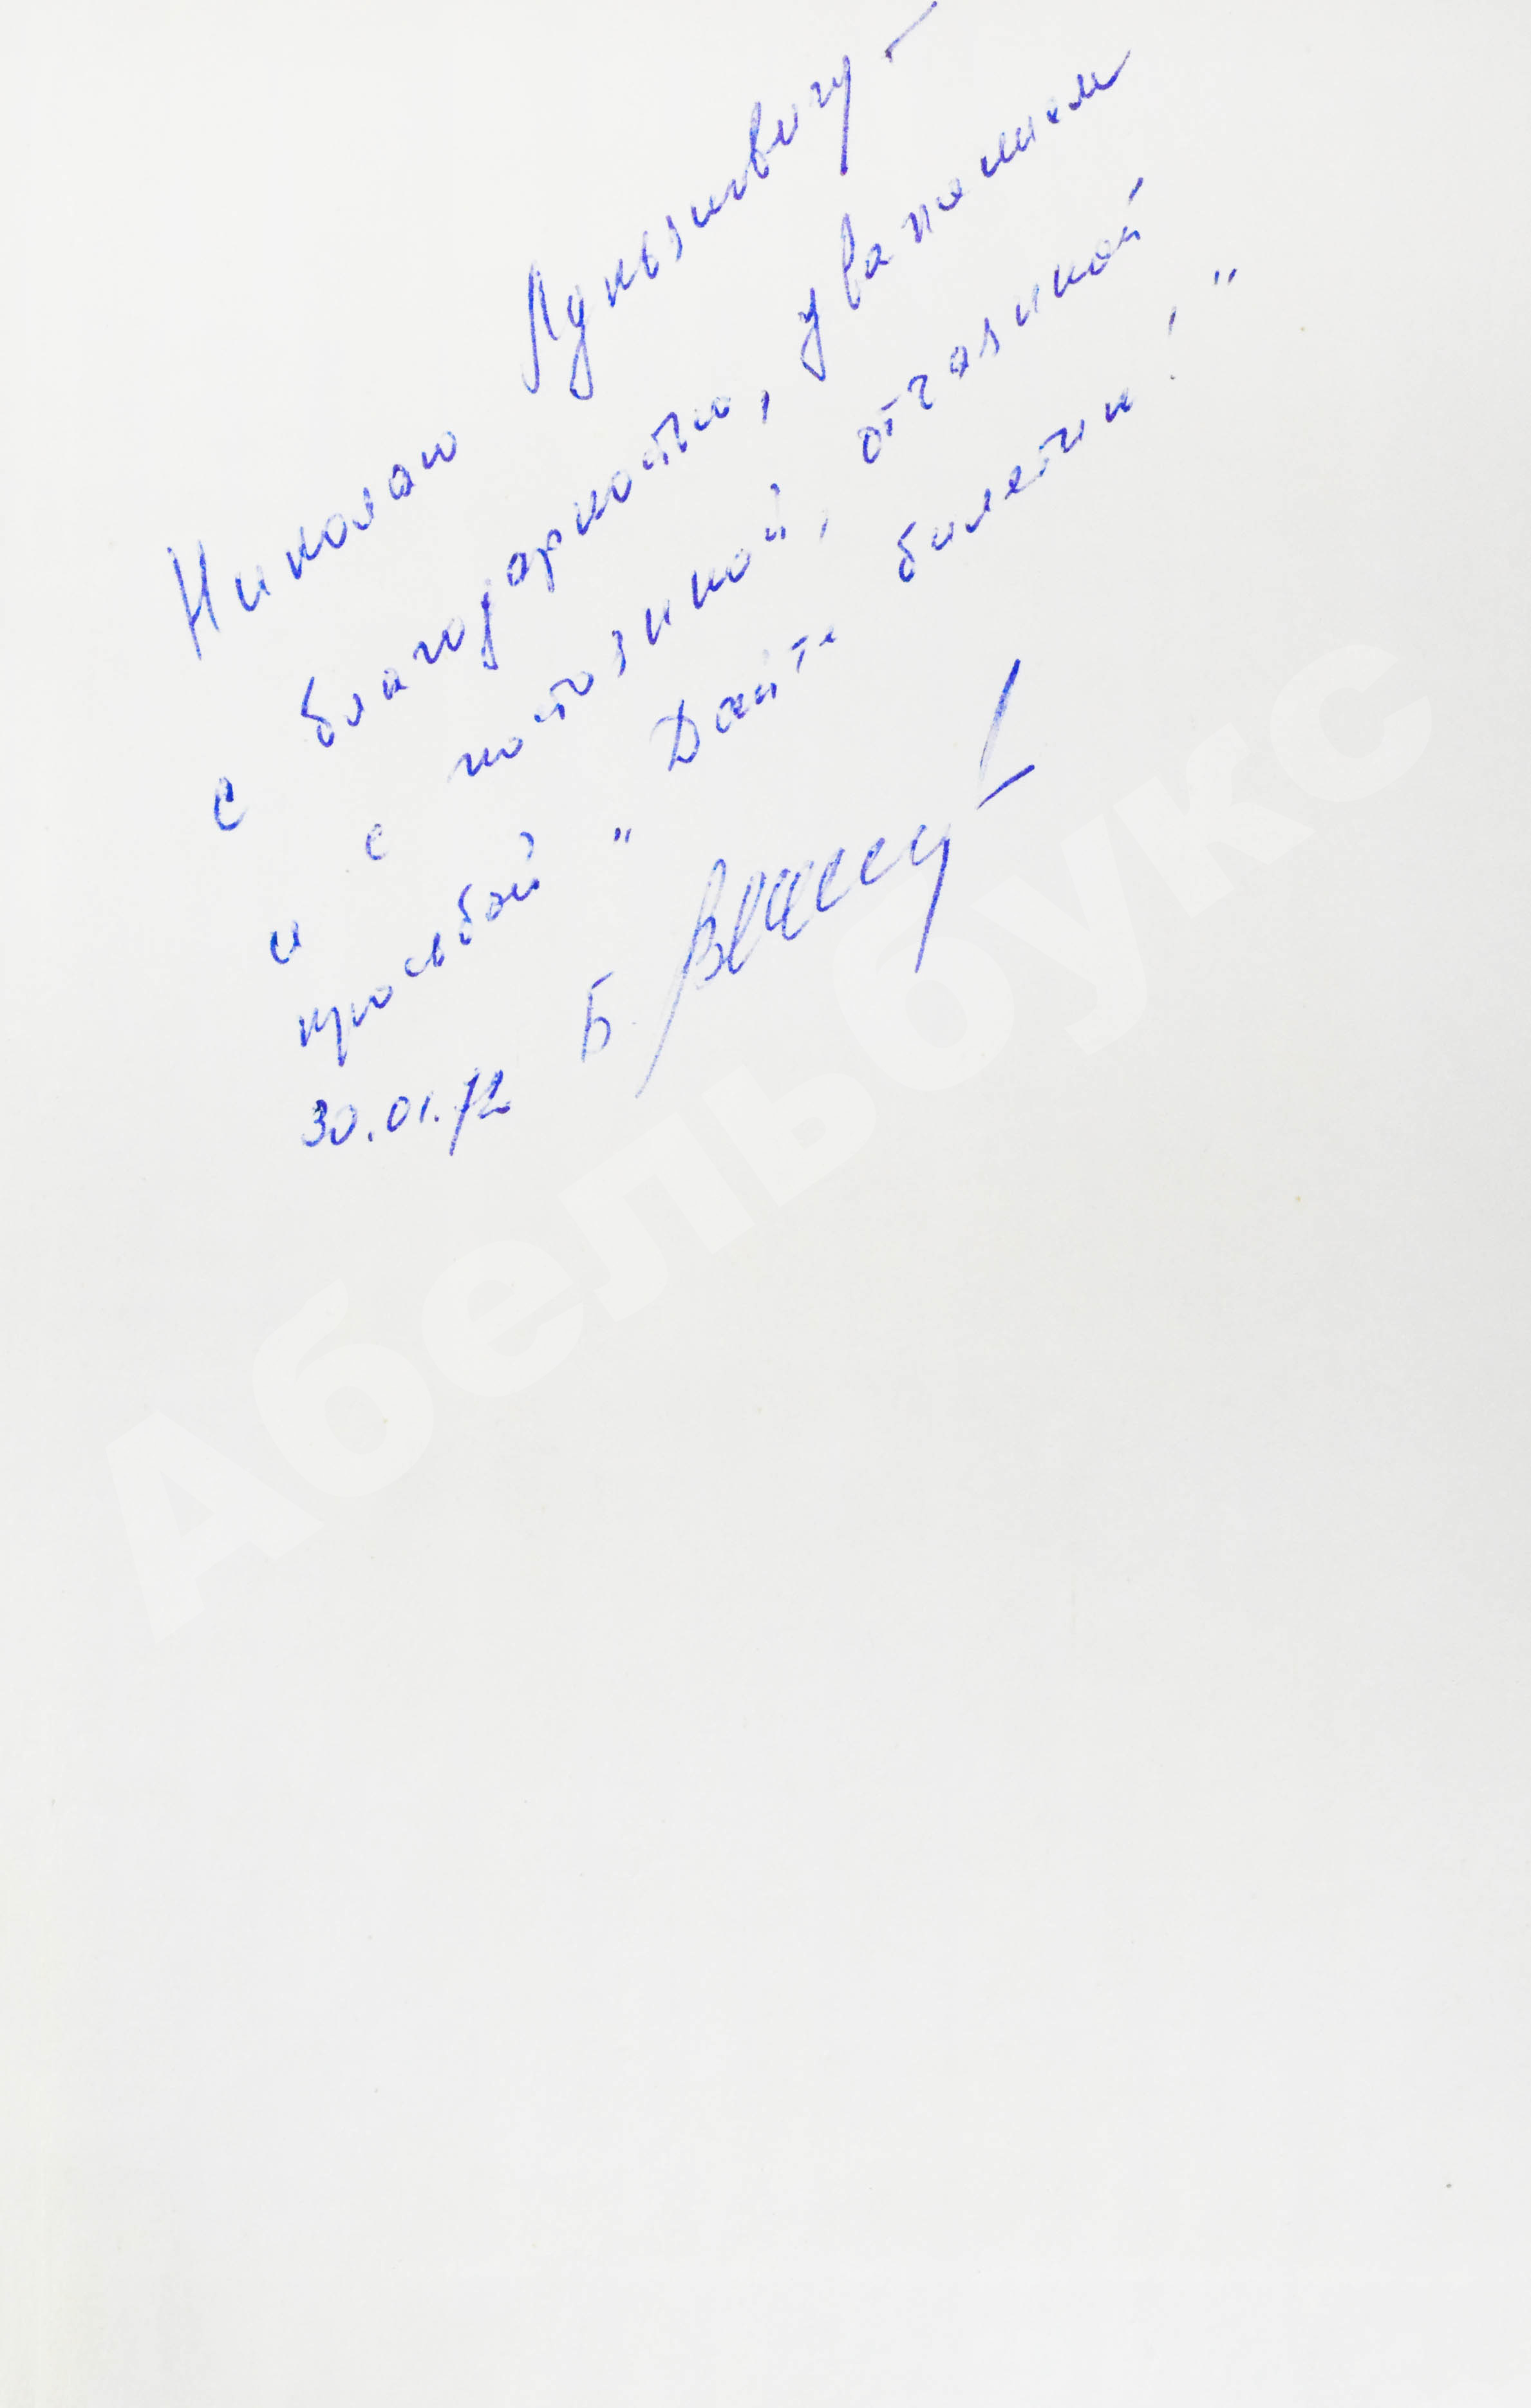 Николаю Лукьяновичу –
с благодарностью, уважением
и с постоянной, отчаянной
просьбой " Дайте билетик! "
Б.
30.01.72
Абельбукс